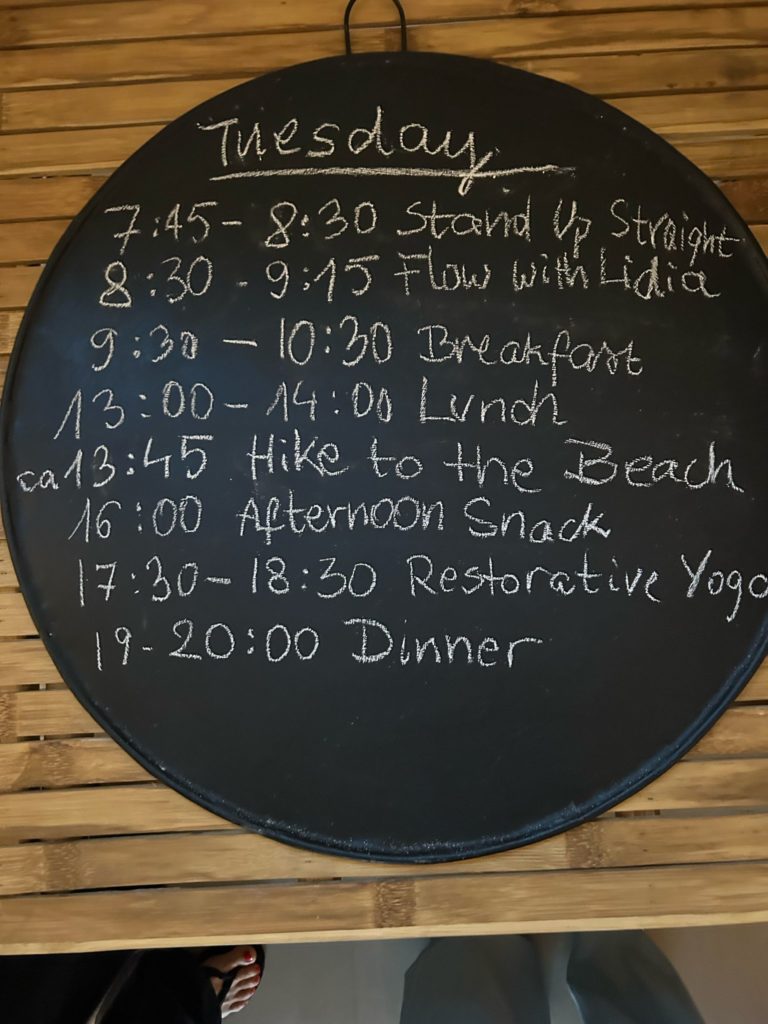 Tuesday
7:45 - 8:30 Stand Up Straight
8:30 - 9:15 Flow with Lidia
9:30 - 10:30 Breakfast
13:00 - 14:00 Lunch
ca 13:45 Hike to the Beach
16:00 Afternoon Snack
17:30 - 18:30 Restorative Yoga
19 - 20:00 Dinner